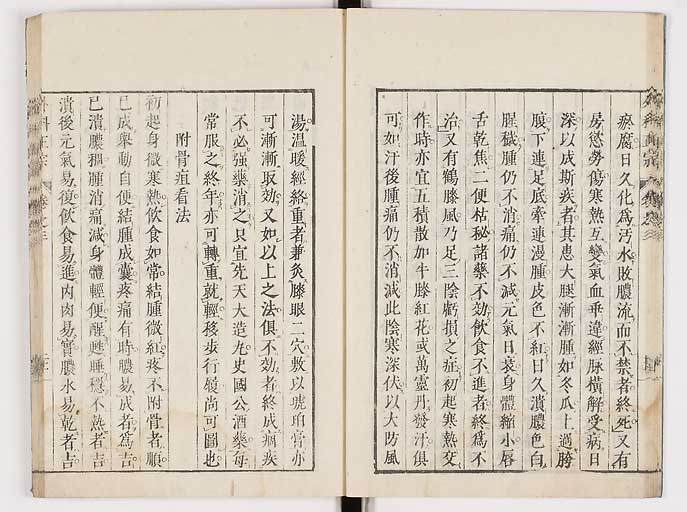 瘀腐日久化為汚水敗膿流而不禁者終死又有
房慾勞傷寒熱互變氣血乖違經脉橫解受病日
深以成斯疾者其患大腿漸漸腫如冬瓜上過胯
腹下連足底牽連漫腫皮色不紅日久潰膿色白
腥穢腫仍不消痛仍不減元氣日衰身體縮小唇
舌乾焦二便枯秘諸藥不効飲食不進者終爲不
治又有鶴膝風乃足三陰虧損之症初起寒熱交
作時亦宜五積散加牛膝紅花或萬靈丹發汗俱
可如汗後腫痛仍不消減此陰寒深伏以大防風
湯溫暖經絡重者兼灸膝眼二穴敷以琥珀膏亦
可漸漸取効又如以上之法俱不効者終成痼疾
不必強藥消之只宜先天大造丸史國公酒藥每
常服之終年亦可轉重就輕移步行履尚可圖也
附骨疽看法
初起身微寒熱飲食如常結腫微紅疼不附骨者順
已成舉動自便結腫成囊疼痛有時膿易成者爲吉
已潰膿稠腫消痛減身體輕便醒甦睡穩不熱者吉
潰後元氣易復飲食易進內肉易實膿水易乾者吉
外科正宗
卷之三